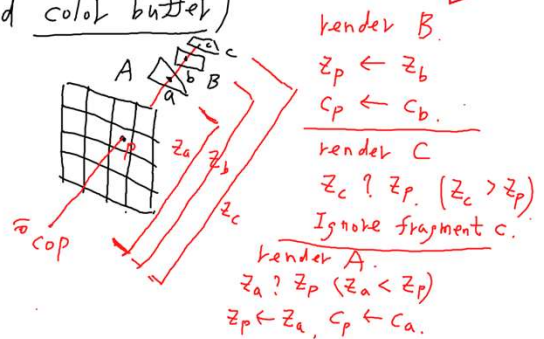 d color buffer)
A
a
b
B
c
C
P
COP
Za
Zb
Zc
render B.
Zp ← Zb
Cp ← Cb.
render C
Zc ? Zp. (Zc > Zp)
Ignore fragment c.
render A.
Za ? Zp (Za < Zp)
Zp ← Za, Cp ← Ca.